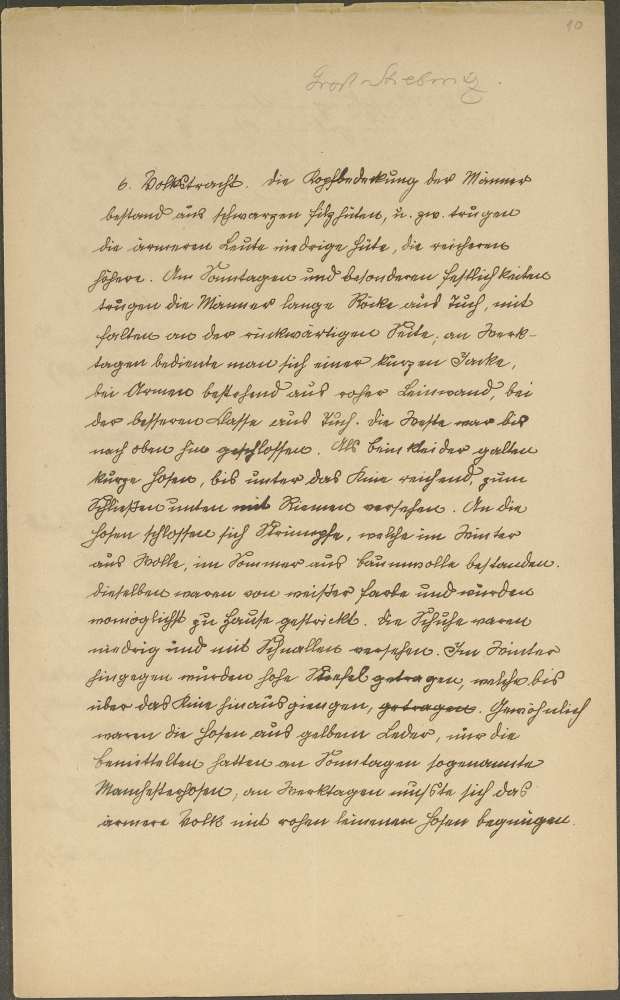 10
Groß-Stiebnitz.
6. Volkstracht. Die Kopfbedeckung der Männer
bestand aus schwarzen Filzhüten, u. zw. trugen
die ärmeren Leute niedrige Hüte, die reicheren
höhere. An Sonntagen und besonderen Festlichkeiten
trugen die Männer lange Röcke aus Tuch, mit
Falten an der rückwärtigen Seite, an Werk-
tagen bediente man sich einer kurzen Jacke,
bei Armen bestehend aus roher Leinwand, bei
der besseren Classe aus Tuch. Die Weste war bis
nach oben hin geschlossen. Als Beinkleider galten
kurze Hosen, bis unter das Knie reichend, zum
Schließen unten mit Riemen versehen. An die
Hosen schlossen sich Strümpfe, welche im Winter
aus Wolle, im Sommer aus Baumwolle bestanden.
Dieselben waren von weißer Farbe und wurden
womöglichst zu Hause gestrickt. Die Schuhe waren
niedrig und mit Schnallen versehen. Im Winter
hingegen wurden hohe Stiefel getragen, welche bis
über das Knie hinausgiengen, getragen. Gewöhnlich
waren die Hosen aus gelbem Leder, nur die
Bemittelten hatten an Sonntagen sogenannte
Manchesterhosen, an Werktagen mußte sich das
ärmere Volk mit rohen leinenen Hosen begnügen.